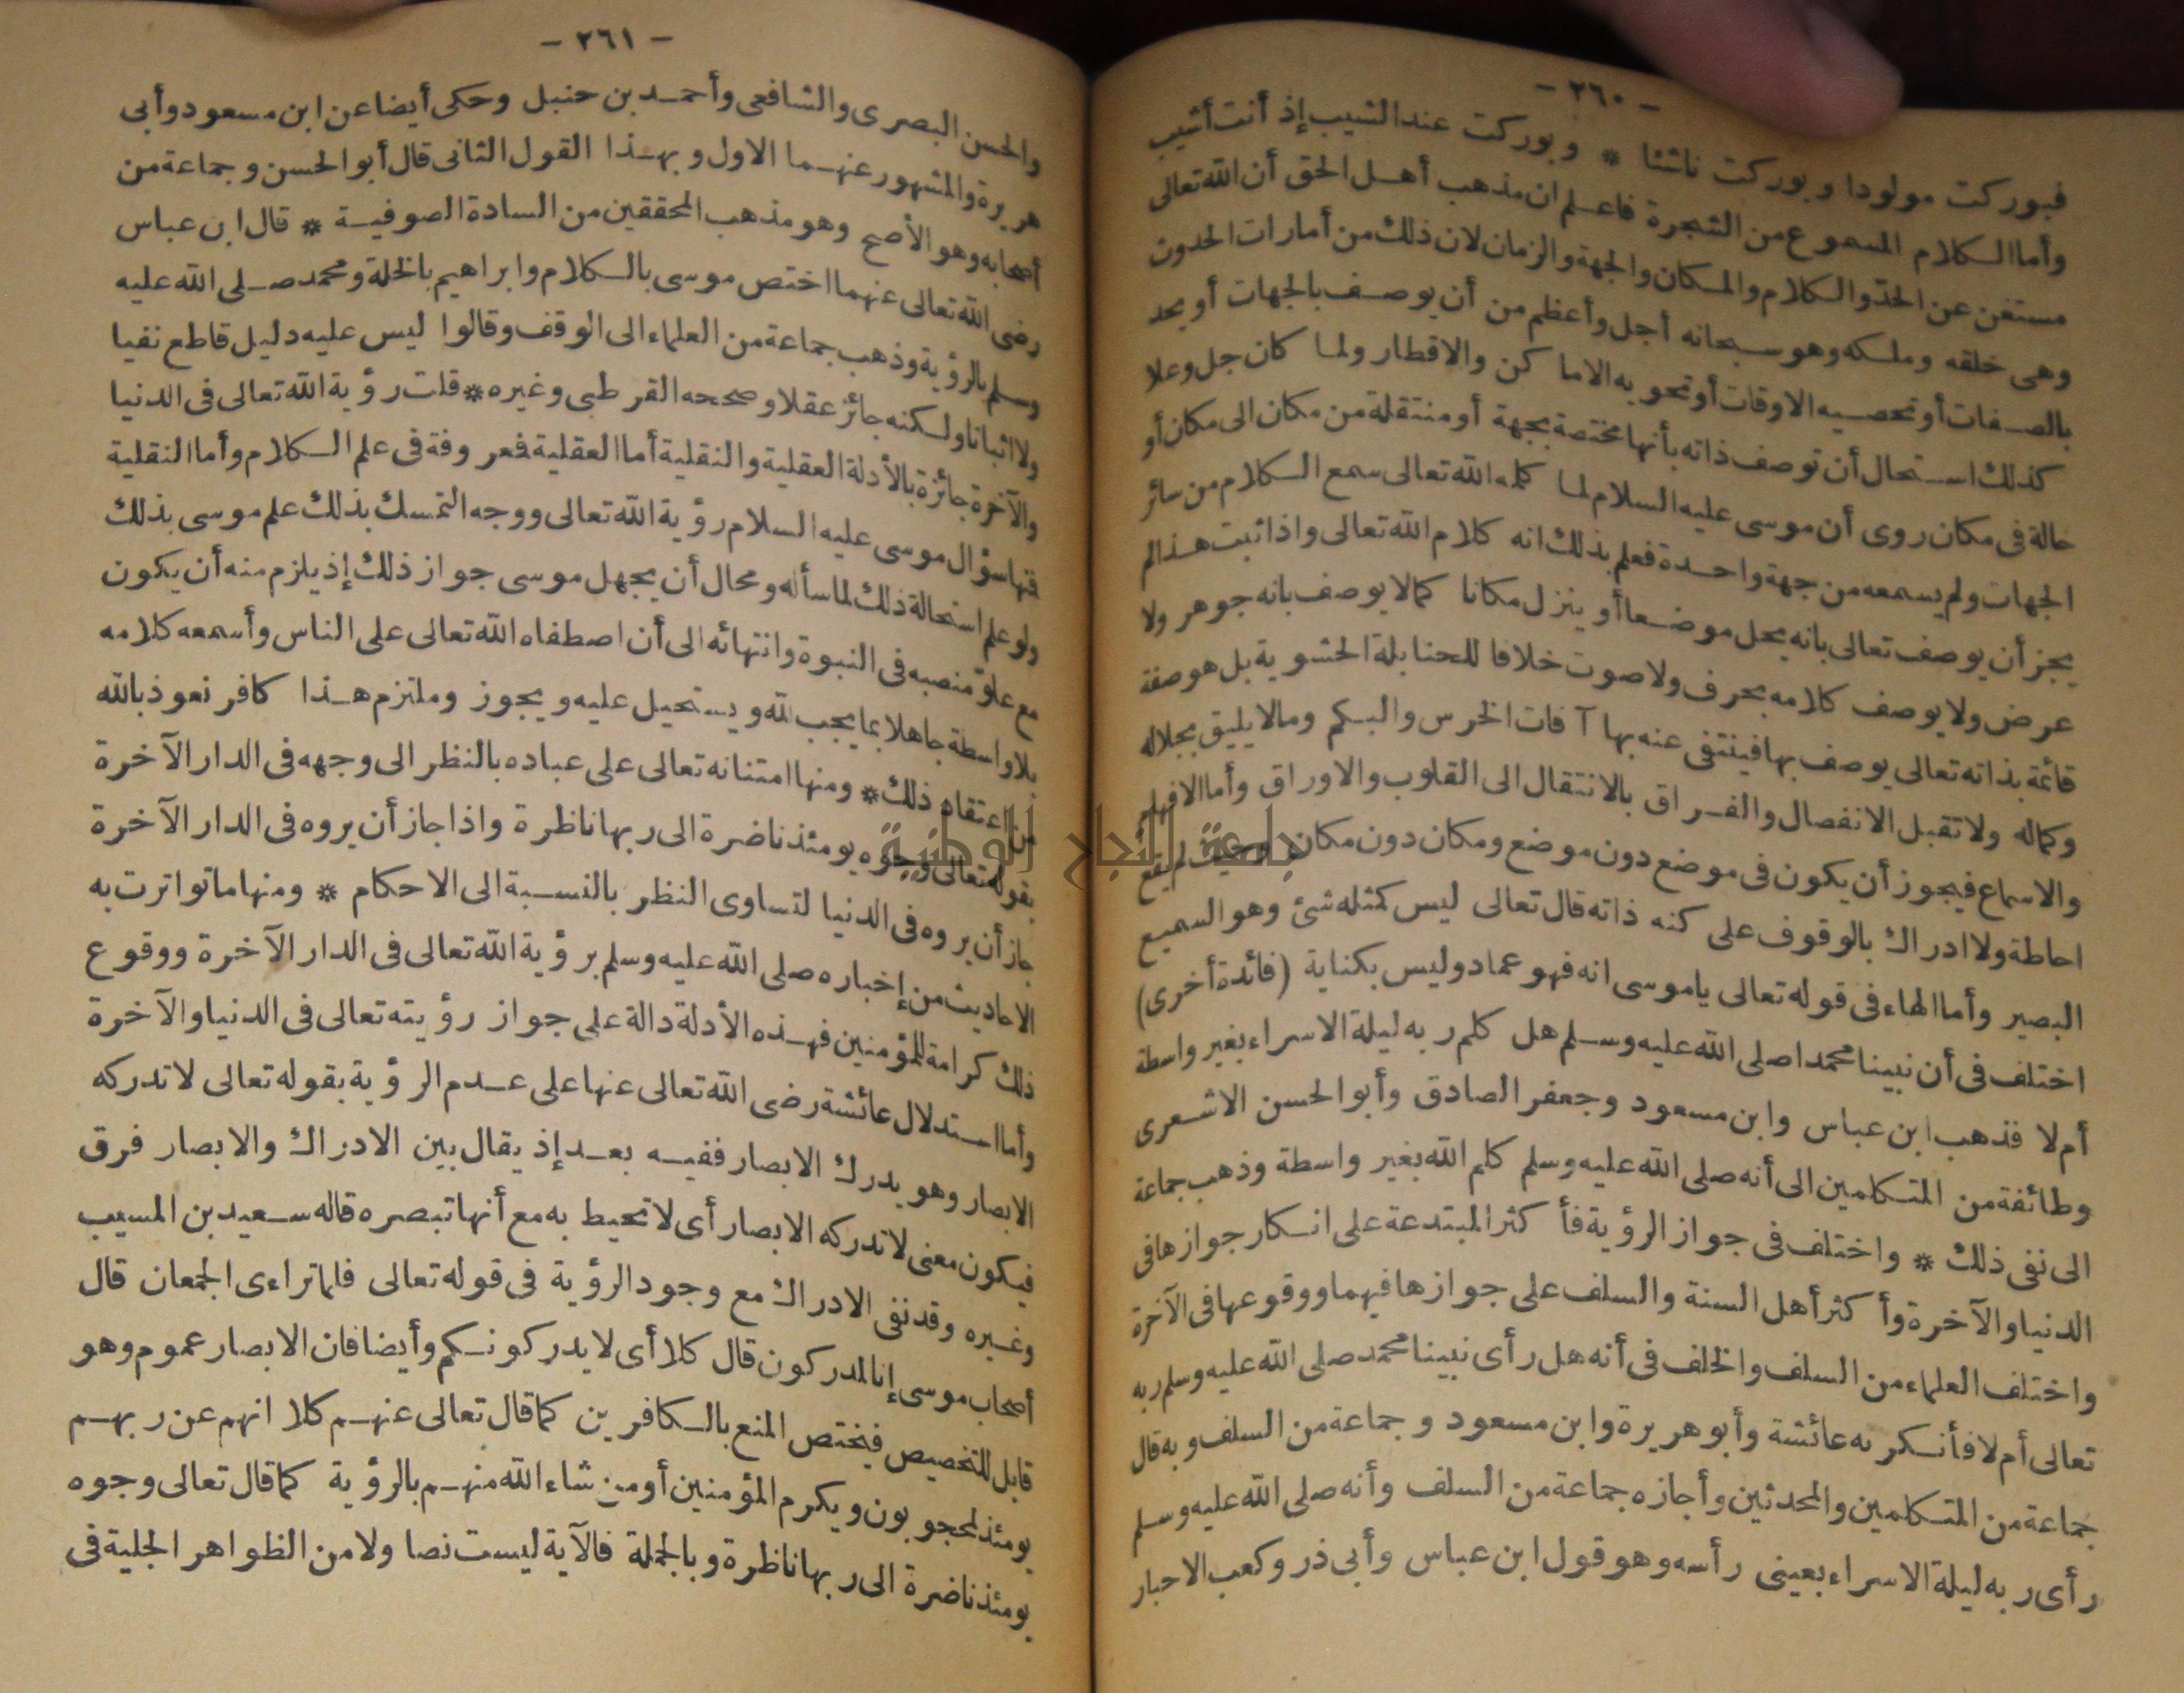 - ٢٦٠ -
فبوركت مولودا وبوركت ناشئا * وبوركت عند الشيب إذ أنت أشيب
وأما الكلام المسموع من الشجرة فاعلم ان مذهب أهل الحق أن الله تعالى
مستغن عن الحد والكلام والمكان والجهة والزمان لان ذلك من أمارات الحدوث
وهى خلقه وملكه وهو سبحانه أجل وأعظم من أن يوصف بالجهات أو يحد
بالصفات أو تحصيه الاوقات أو تحويه الاماكن والاقطار ولما كان جل وعلا
كذلك استحال أن توصف ذاته بأنها مختصة بجهة أو منتقلة من مكان الى مكان أو
حالة فى مكان روى أن موسى عليه السلام لما كلمه الله تعالى سمع الكلام من سائر
الجهات ولم يسمعه من جهة واحدة فعلم بذلك انه كلام الله تعالى واذا ثبت هذا لم
يجز أن يوصف تعالى بانه يحل موضعا أو ينزل مكانا كما لا يوصف بانه جوهر ولا
عرض ولا يوصف كلامه بحرف ولا صوت خلافا للحنابلة الحشوية بل هو صفة
قائمة بذاته تعالى يوصف بها فينتفى عنه بها آفات الخرس والبكم وما لا يليق بجلاله
وكماله ولا تقبل الانفصال والفراق بالانتقال الى القلوب والاوراق وأما الافهام
والاسماع فيجوز أن يكون فى موضع دون موضع ومكان دون مكان وحيث لم يقع
احاطة ولا ادراك بالوقوف على كنه ذاته قال تعالى ليس كمثله شئ وهو السميع
البصير وأما الهاء فى قوله تعالى ياموسى انه فهو عماد وليس بكناية (فائدة أخرى)
اختلف فى أن نبينا محمدا صلى الله عليه وسلم هل كلم ربه ليلة الاسراء بغير واسطة
أم لا فذهب ابن عباس وابن مسعود وجعفر الصادق وأبو الحسن الاشعرى
وطائفة من المتكلمين الى أنه صلى الله عليه وسلم كلم الله بغير واسطة وذهب جماعة
الى نفى ذلك * واختلف فى جواز الرؤية فأكثر المبتدعة على انكار جوازها فى
الدنيا والآخرة وأكثر أهل السنة والسلف على جوازها فيهما ووقوعها فى الآخرة
واختلف العلماء من السلف والخلف فى أنه هل رأى نبينا محمد صلى الله عليه وسلم ربه
تعالى أم لا فأنكر به عائشة وأبو هريرة وابن مسعود وجماعة من السلف وبه قال
جماعة من المتكلمين والمحدثين وأجازه جماعة من السلف وأنه صلى الله عليه وسلم
رأى ربه ليلة الاسراء بعينى رأسه وهو قول ابن عباس وأبى ذر وكعب الاحبار
- ٢٦١ -
والحسن البصرى والشافعى وأحمد بن حنبل وحكى أيضا عن ابن مسعود وأبى
هريرة والمشهور عنهما الاول وبهذا القول الثانى قال أبو الحسن وجماعة من
أصحابه وهو الأصح وهو مذهب المحققين من السادة الصوفية * قال ابن عباس
رضى الله تعالى عنهما اختص موسى بالكلام وابراهيم بالخلة ومحمد صلى الله عليه
وسلم بالرؤية وذهب جماعة من العلماء الى الوقف وقالوا ليس عليه دليل قاطع نفيا
ولا اثباتا ولكنه جائز عقلا وصححه القرطبى وغيره * قلت رؤية الله تعالى فى الدنيا
والآخرة جائزة بالأدلة العقلية والنقلية أما العقلية فمعروفة فى علم الكلام وأما النقلية
فمنها سؤال موسى عليه السلام رؤية الله تعالى ووجه التمسك بذلك علم موسى بذلك
ولو علم استحالة ذلك لما سأله ومحال أن يجهل موسى جواز ذلك إذ يلزم منه أن يكون
مع علوّ منصبه فى النبوة وانتهائه الى أن اصطفاه الله تعالى على الناس وأسمعه كلامه
بلا واسطة جاهلا بما يجب لله ويستحيل عليه ويجوز وملتزم هذا كافر نعوذ بالله
من اعتقاد ذلك * ومنها امتنانه تعالى على عباده بالنظر الى وجهه فى الدار الآخرة
بقوله تعالى وجوه يومئذ ناضرة الى ربها ناظرة واذا جاز أن يروه فى الدار الآخرة
جاز أن يروه فى الدنيا لتساوى النظر بالنسبة الى الاحكام * ومنها ما تواترت به
الاحاديث من إخباره صلى الله عليه وسلم برؤية الله تعالى فى الدار الآخرة ووقوع
ذلك كرامة للمؤمنين فهذه الأدلة دالة على جواز رؤيته تعالى فى الدنيا والآخرة
وأما استدلال عائشة رضى الله تعالى عنها على عدم الرؤية بقوله تعالى لا تدركه
الابصار وهو يدرك الابصار ففيه بعد إذ يقال بين الادراك والابصار فرق
فيكون معنى لا تدركه الابصار أى لا تحيط به مع أنها تبصره قاله سعيد بن المسيب
وغيره وقد نفى الادراك مع وجود الرؤية فى قوله تعالى فلما تراءى الجمعان قال
أصحاب موسى إنا لمدركون قال كلا أى لا يدركونكم وأيضا فان الابصار عموم وهو
قابل للتخصيص فيختص المنع بالكافرين كما قال تعالى عنهم كلا انهم عن ربهم
يومئذ لمحجوبون ويكرم المؤمنين أو من شاء الله منهم بالرؤية كما قال تعالى وجوه
يومئذ ناضرة الى ربها ناظرة وبالجملة فالآية ليست نصا ولا من الظواهر الجلية فى
جامعة النجاح الوطنية